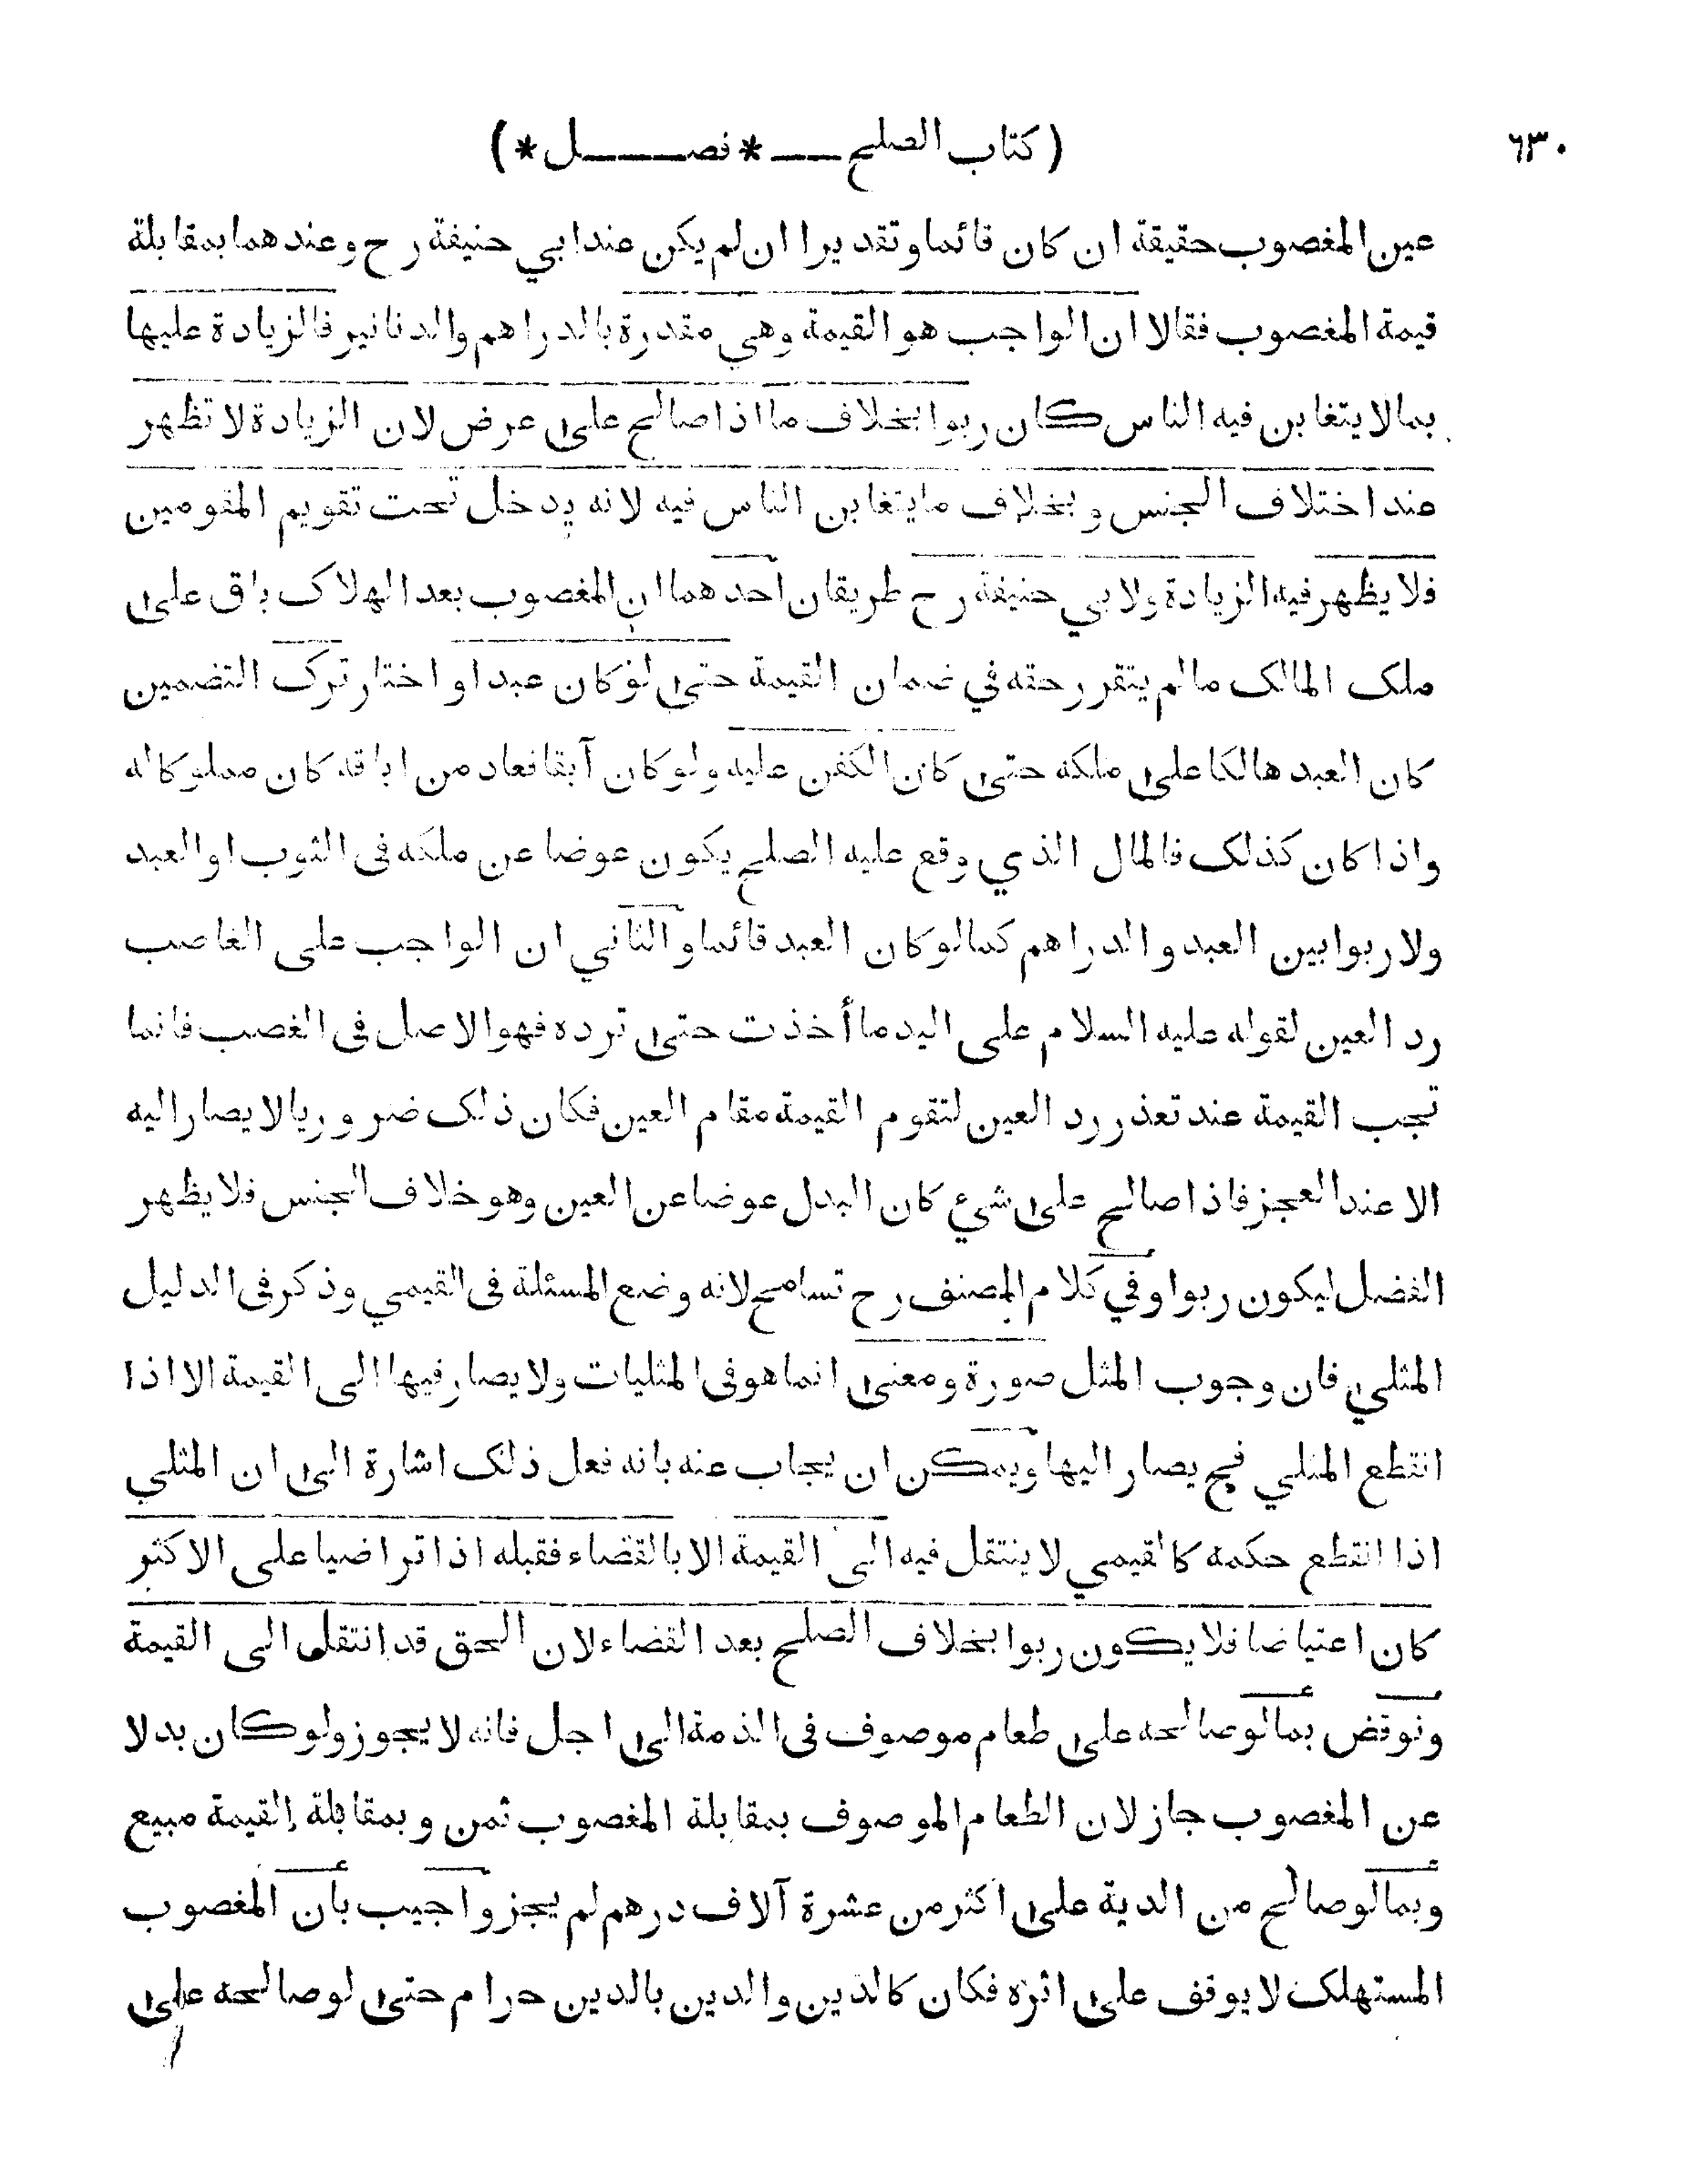 ٦٣٠
( كتاب الصلح ـــ * فصــــل * )
عين المغصوب حقيقة ان كان قائما وتقديرا ان لم يكن عند ابي حنيفة رح وعندهما بمقابلة
قيمة المغصوب فقالا ان الواجب هو القيمة وهي مقدرة بالدراهم والدنانير فالزيادة عليها
بما لا يتغابن فيه الناس كان ربوا بخلاف ما اذا صالح على عرض لان الزيادة لا تظهر
عند اختلاف الجنس وبخلاف ما يتغابن الناس فيه لانه يدخل تحت تقويم المقومين
فلا يظهر فيه الزيادة ولابي حنيفة رح طريقان احدهما ان المغصوب بعد الهلاك باق على
ملك المالك ما لم يتقرر حقه في ضمان القيمة حتى لو كان عبدا واختار ترك التضمين
كان العبد هالكا على ملكه حتى كان الكفن عليه ولو كان آبقا فعاد من اباقه كان مملوكا له
واذا كان كذلك فالمال الذي وقع عليه الصلح يكون عوضا عن ملكه فى الثوب او العبد
ولا ربوا بين العبد والدراهم كما لو كان العبد قائما والثاني ان الواجب على الغاصب
رد العين لقوله عليه السلام على اليد ما أخذت حتى ترده فهو الاصل فى الغصب فانما
تجب القيمة عند تعذر رد العين لتقوم القيمة مقام العين فكان ذلك ضروريا لا يصار اليه
الا عند العجز فاذا صالح على شئ كان البدل عوضا عن العين وهو خلاف الجنس فلا يظهر
الفضل ليكون ربوا وفي كلام المصنف رح تسامح لانه وضع المسئلة فى القيمي وذكر فى الدليل
المثلي فان وجوب المثل صورة ومعنى انما هو فى المثليات ولا يصار فيها الى القيمة الا اذا
انقطع المثلي فح يصار اليها ويمكن ان يجاب عنه بانه فعل ذلك اشارة الى ان المثلي
اذا انقطع حكمه كالقيمي لا ينتقل فيه الى القيمة الا بالقضاء فقبله اذا تراضيا على الاكثر
كان اعتياضا فلا يكون ربوا بخلاف الصلح بعد القضاء لان الحق قد انتقل الى القيمة
ونوقض بما لو صالحه على طعام موصوف فى الذمة الى اجل فانه لا يجوز ولو كان بدلا
عن المغصوب جاز لان الطعام الموصوف بمقابلة المغصوب ثمن وبمقابلة القيمة مبيع
وبما لو صالح من الدية على اكثر من عشرة آلاف درهم لم يجز واجيب بأن المغصوب
المستهلك لا يوقف على اثره فكان كالدين والدين بالدين حرام حتى لو صالحه على